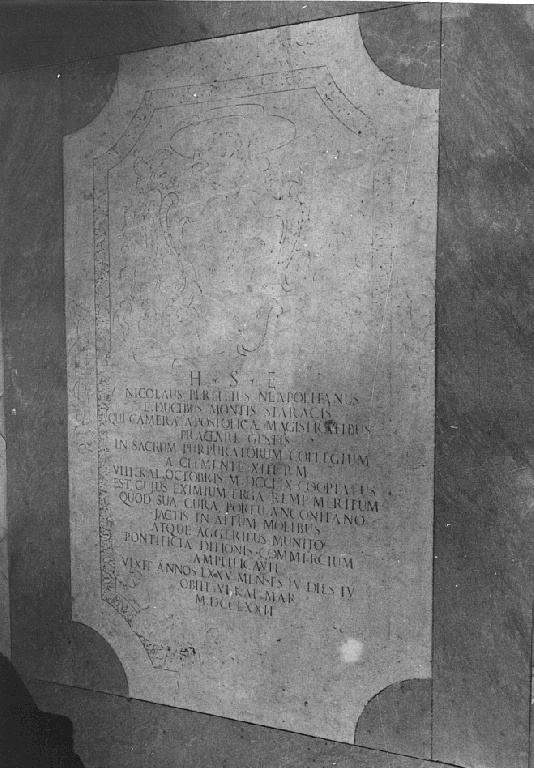 H · S · E
NICOLAUS PERELLIUS NEAPOLITANUS
E DUCIBUS MONTIS STARACIS
QUI CAMERÆ APOSTOLICÆ MAGISTRATIBUS
PRÆCLARE GESTIS
IN SACRUM PURPURATORUM COLLEGIUM
A CLEMENTE XIII P.M.
VIII KAL. OCTOBRIS M.DCCLIX COOPTATUS
EST CUIUS EXIMIUM ERGA REMP. MERITUM
QUOD SUA CURA, PORTU ANCONITANO
JACTIS IN ALTUM MOLIBUS
ATQUE AGGERIBUS MUNITO
PONTIFICIÆ DITIONIS COMMERCIUM
AMPLIFICAVIT
VIXIT ANNOS LXXV MENSES IV DIES IV
OBIIT VI KAL. MAR
M.DCCLXXII